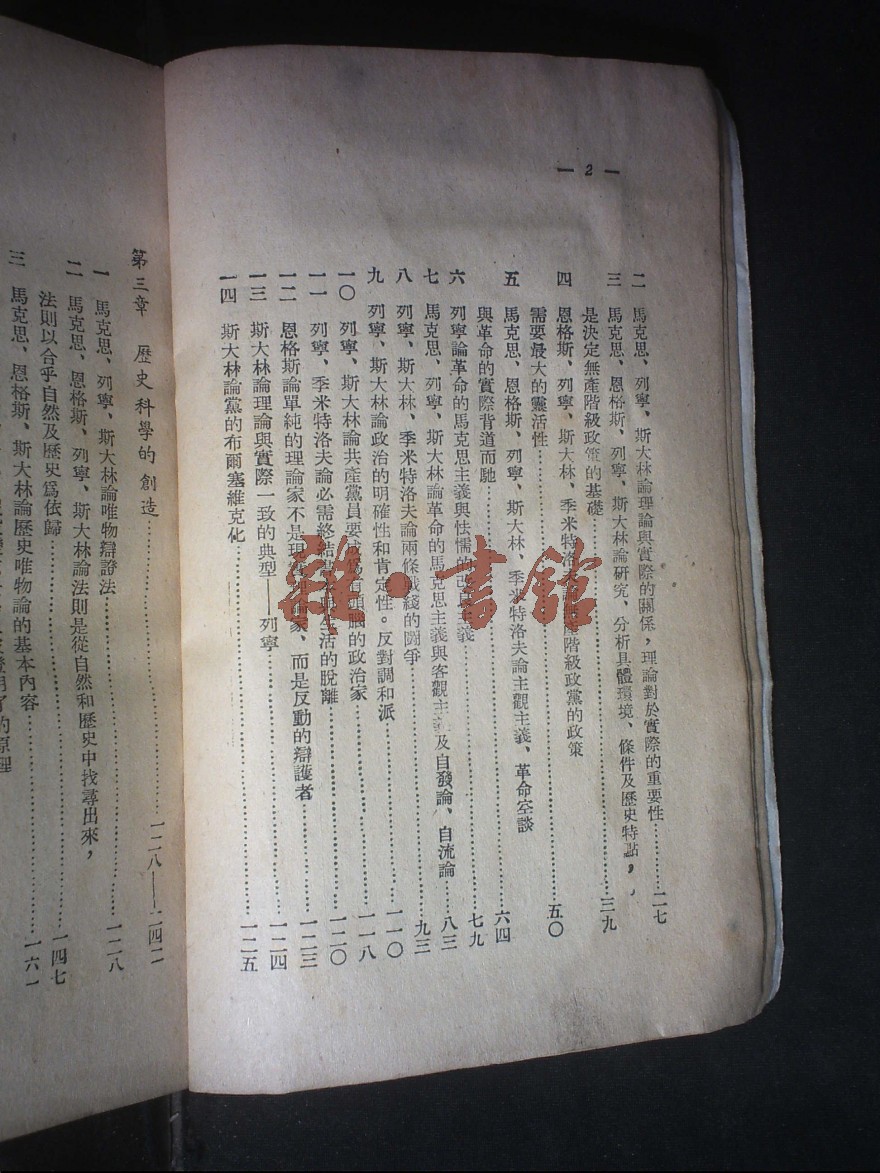 — 2 —
二 馬克思、列寧、斯大林論理論與實際的關係，理論對於實際的重要性……二七
三 馬克思、恩格斯、列寧、斯大林論研究、分析具體環境、條件及歷史特點，
是決定無產階級政策的基礎……三九
四 恩格斯、列寧、斯大林、季米特洛夫論無產階級政黨的政策
需要最大的靈活性……五〇
五 馬克思、恩格斯、列寧、斯大林、季米特洛夫論主觀主義、革命空談
與革命的實際背道而馳……六四
六 列寧論革命的馬克思主義與怯懦的改良主義……七九
七 馬克思、列寧、斯大林論革命的馬克思主義與客觀主義及自發論、自流論……八三
八 列寧、斯大林、季米特洛夫論兩條戰綫的鬪爭……九三
九 列寧、斯大林論政治的明確性和肯定性。反對調和派……一一〇
一〇 列寧、斯大林論共產黨員要成爲有頭腦的政治家……一一八
一一 列寧、季米特洛夫論必需終結書本與生活的脫離……一二〇
一二 恩格斯論單純的理論家不是現實的 家、而是反動的辯護者……一二三
一三 斯大林論理論與實際一致的典型——列寧……一二四
一四 斯大林論黨的布爾塞維克化……一二五
雜·書館
第三章 歷史科學的創造……一二八——二四二
一 馬克思、列寧、斯大林論唯物辯證法……一二八
二 馬克思、恩格斯、列寧、斯大林論法則是從自然和歷史中找尋出來，
法則以合乎自然及歷史爲依歸……一四七
三 馬克思、恩格斯、斯大林論歷史唯物論的基本內容……一六一
的原理